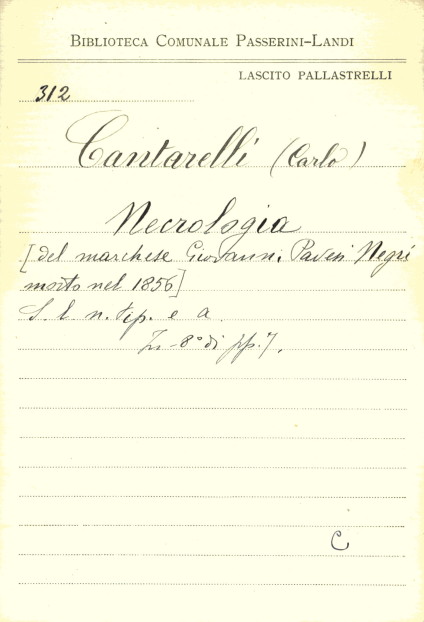 BIBLIOTECA COMUNALE PASSERINI-LANDI
LASCITO PALLASTRELLI
312
Cantarelli (Carlo)
Necrologia
[del marchese Giovanni Pavesi Negri
morto nel 1856]
S. l. n. tip. e a.
In-8° di pp. 7.
C